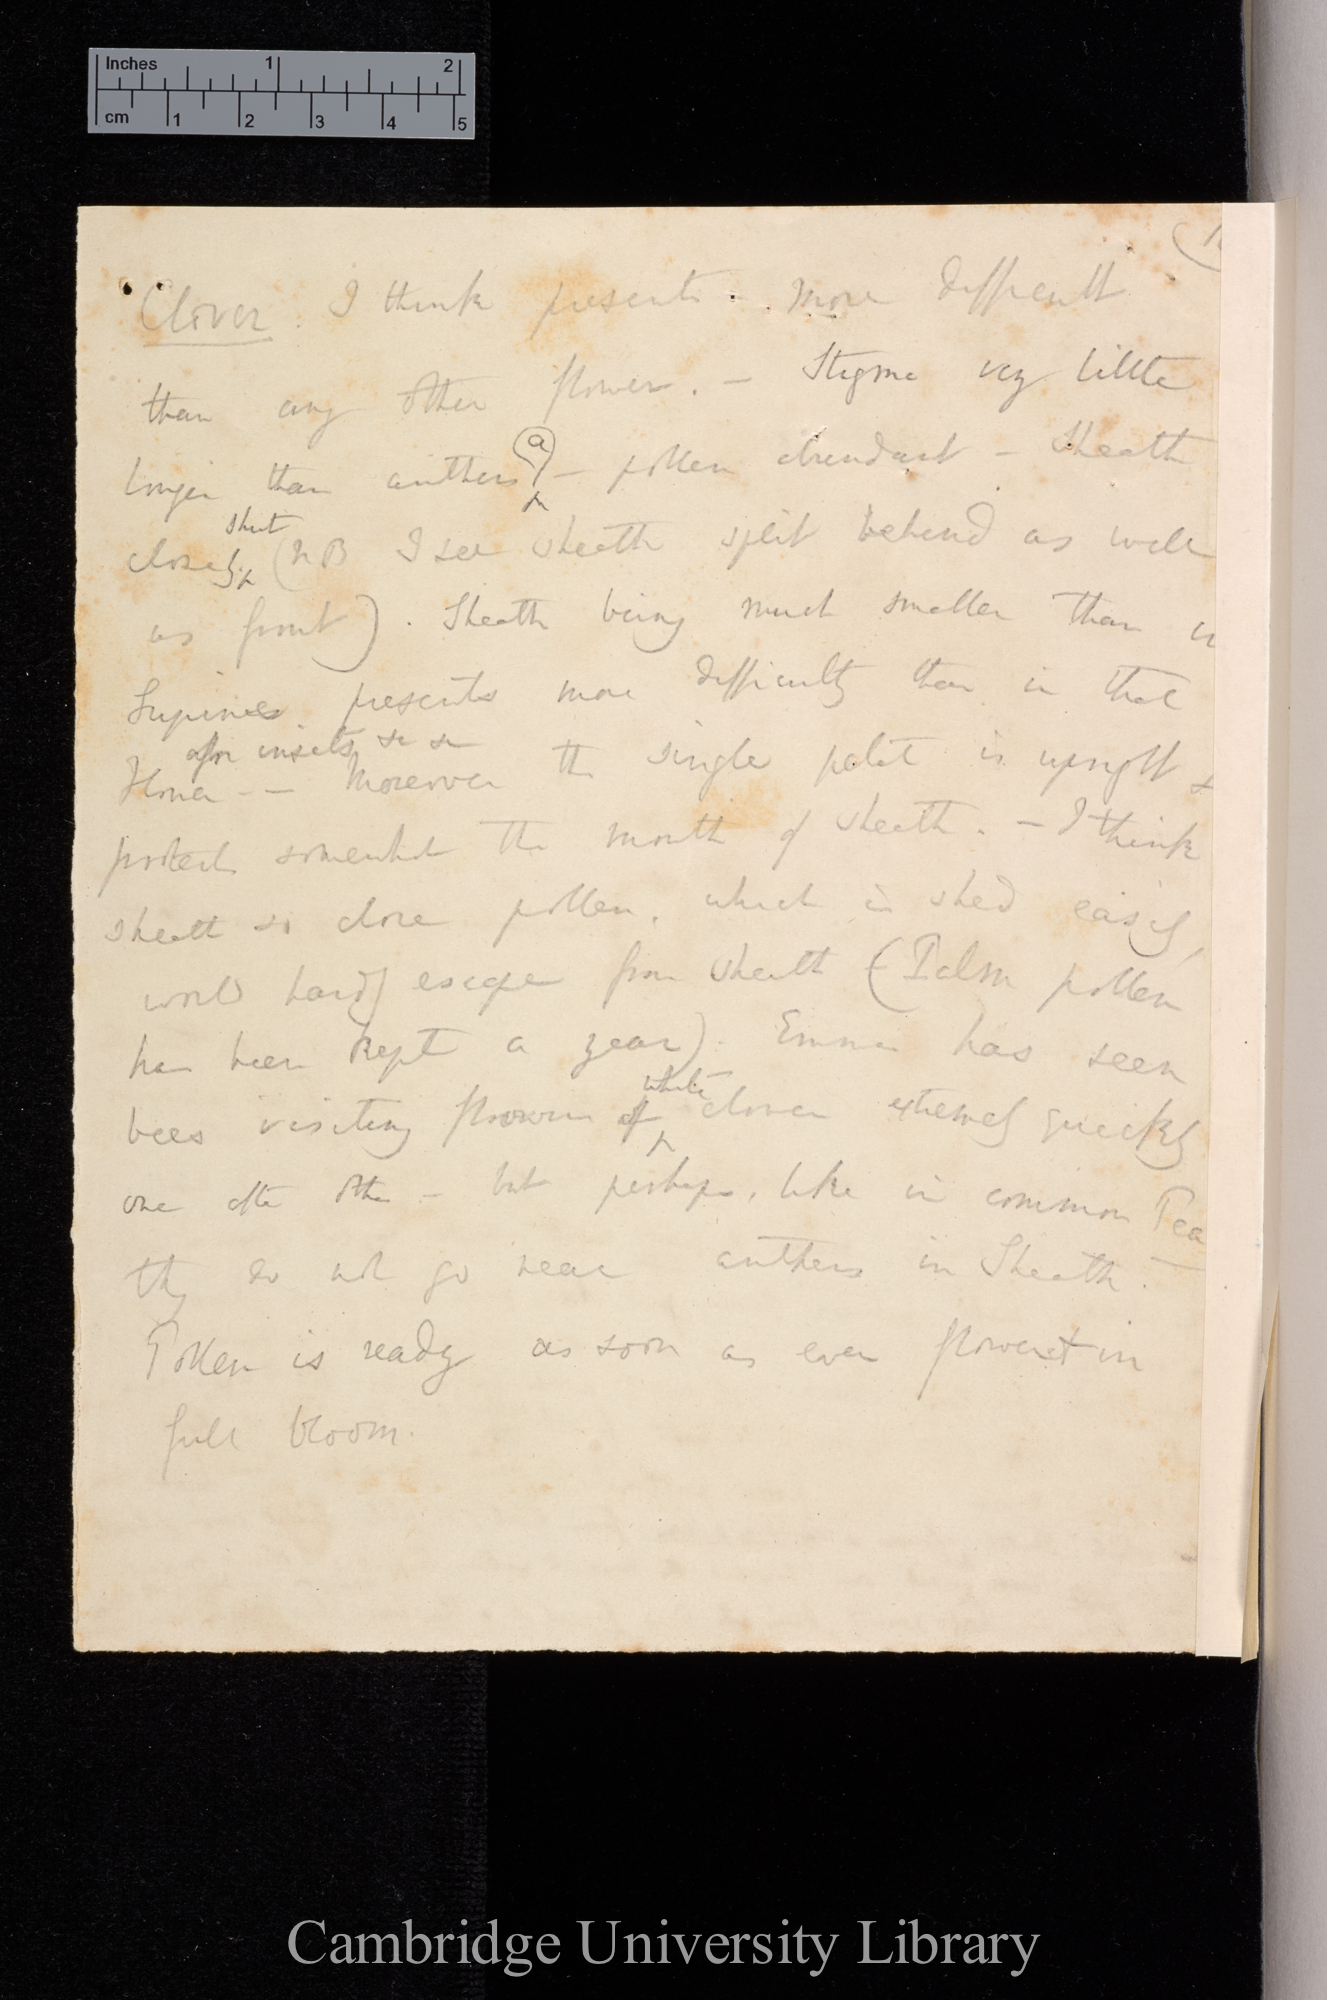 Inches 1 2
cm 1 2 3 4 5
Clover. I think presents - more difficult
than any other flower. — Stigma very little
longer than anthers (a) — pollen abundant — Sheath
closely shut (NB I see sheath split behend as well
as front). Sheath being much smaller than in
Lupines presents more difficulty than in that
flower for insects &c &c — Moreover the single petal is upright &
protects somewhat the mouth of sheath. — I think
sheath so close pollen, which is shed easily,
would hardly escape from sheath (Palm pollen
has been kept a year). Emma has seen
bees visiting flowers of white clover extremely quickly
one after other — but perhaps, like in common Pea
they do not go near anthers in Sheath. —
Pollen is ready as soon as ever floweret in
full bloom.
Cambridge University Library